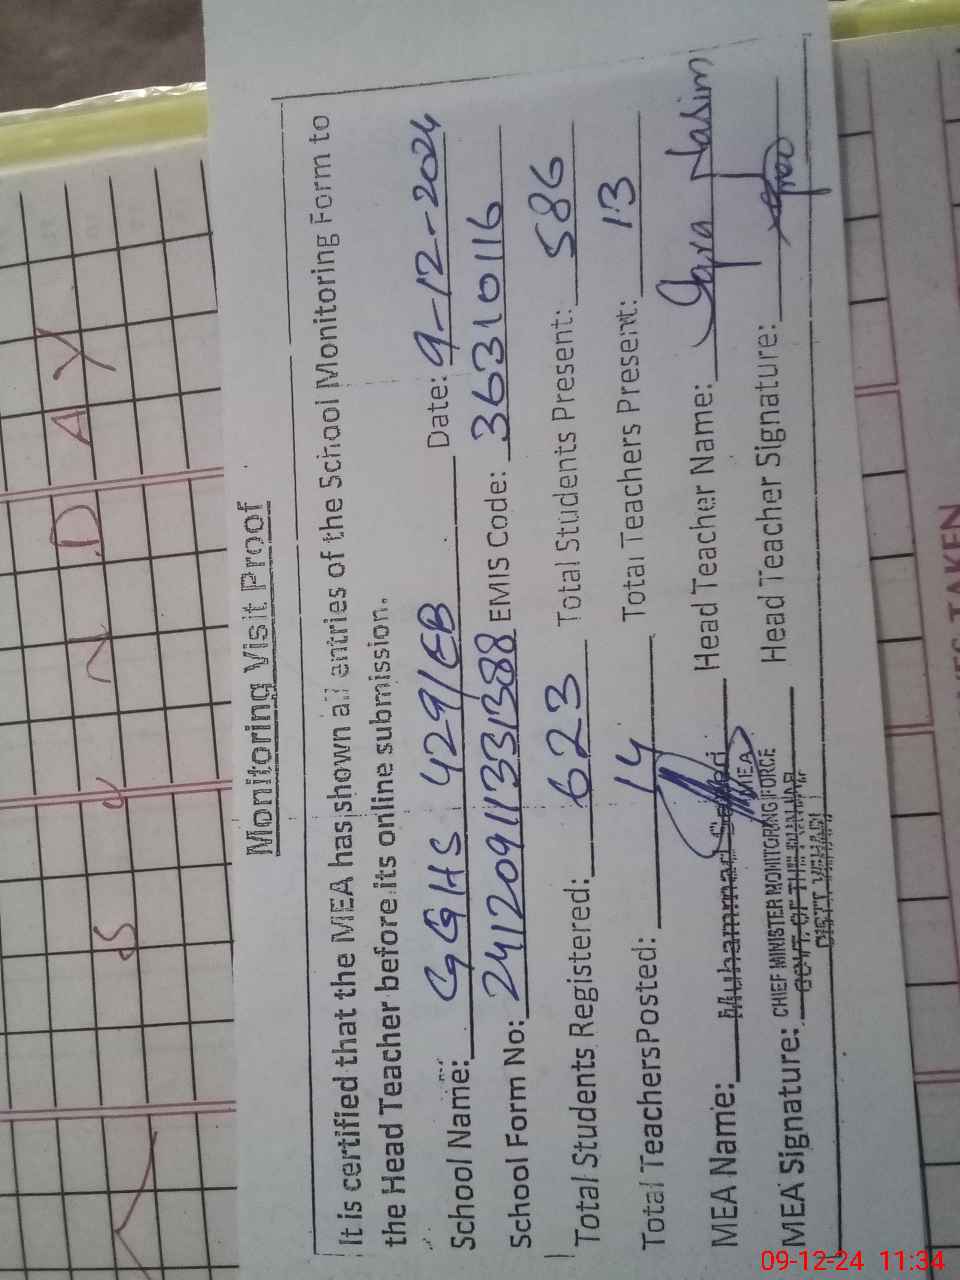 Monitoring Visit Proof
It is certified that the MEA has shown all entries of the School Monitoring Form to
the Head Teacher before its online submission.
School Name: GGHS 429/EB Date: 9-12-2024
School Form No: 24120911331388 EMIS Code: 36310116
Total Students Registered: 623 Total Students Present: 586
Total TeachersPosted: 14 Total Teachers Present: 13
MEA Name: Muhammad Saeed Head Teacher Name: Nasim
(MEA)
MEA Signature: CHIEF MINISTER MONITORING FORCE Head Teacher Signature:
GOVT. OF THE PUNJAB
DISTT. VEHARI
SUNDAY
TAKEN
09-12-24 11:34